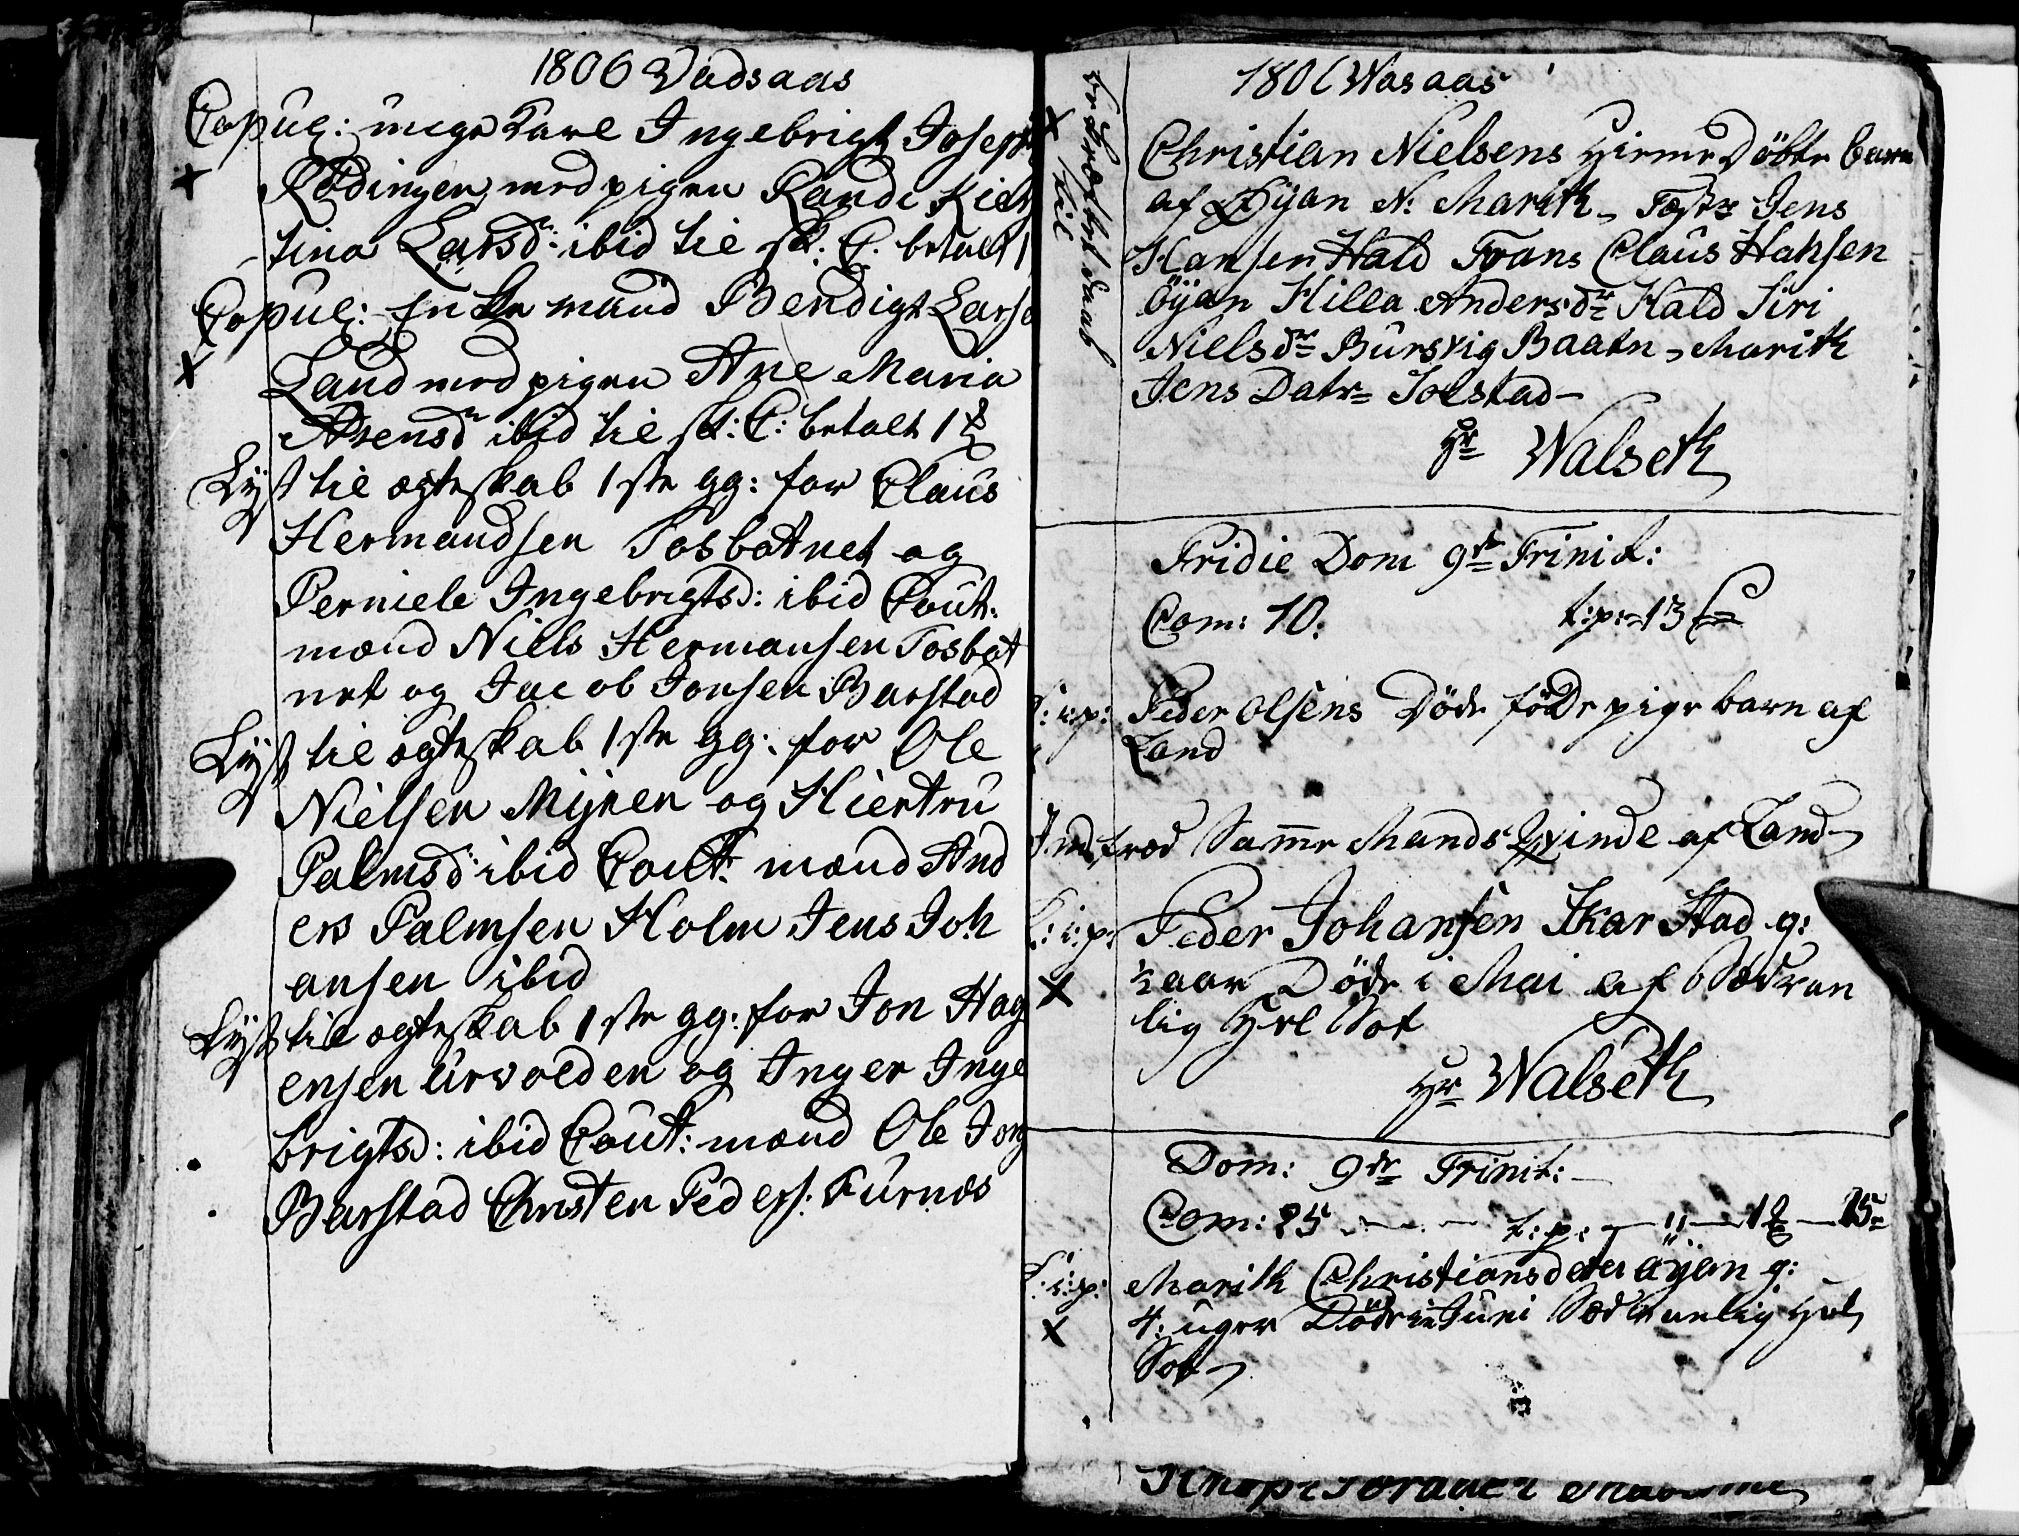 1806 Vadsaas
Copul: unge Karl Ingebrigt Joseph
Rödingen med pigen Randi Kiers
tina Larsdr: ibid til sk: C: betalt 1
Copul: Enke mand Bendigt Larse
Land med pigen Ane Maria
Arensdr ibid til sk: C: betalt 1
Lyst til ægteskab 1ste gg: for Claus
Hermandsen Tosbotnet og
Perniele Ingebrigtsd: ibid Cout:
mænd Niels Hermansen Tosbot
net og Jacob Jonsen Barstad
Lyst til ægteskab 1ste gg: for Ole
Nielsen Myren og Hiertru
Palmsd: ibid Cout: mænd And
ers Palmsen Holm Jens Joh
ansen ibid
Lyst til ægteskab 1ste gg: for Jon Hag
ensen Urvolden og Inger Inge
brigtsd: ibid Cout: mænd Ole Jons
Barstad Christen Peders: Kurnæs
1806 Wasaas
bekræftet Daab
til
Christian Nielsens Hieme Döbte barn
af Öyan N: Marith Fadr: Jens
Hansen Hald Frans Claus Hansen
Öyan Hilla Andersdr Hald Siri
Nielsdr Bursvig Baaten Marith
Jens Datr Solstad
Hr Walseth
Fridie Dom 9de Trinit:
Com: 10: t:p: 13
J:i:p: Peder Olsens Döde föde pige barn af
Land
Indtræd Same Mands Qvinde af Land
J:i:p: Peder Johansen Skarstad g:
½ aar Döde i Mai af Sædvan
lig Hel Sot
Hr Walseth
Dom: 9de Trinit:
Com: 25 t:p: 1 15
J:i:p: Marith Christiansdater Öyan g:
4: uger Döde in Juni Sædvanlig Hel
Sot